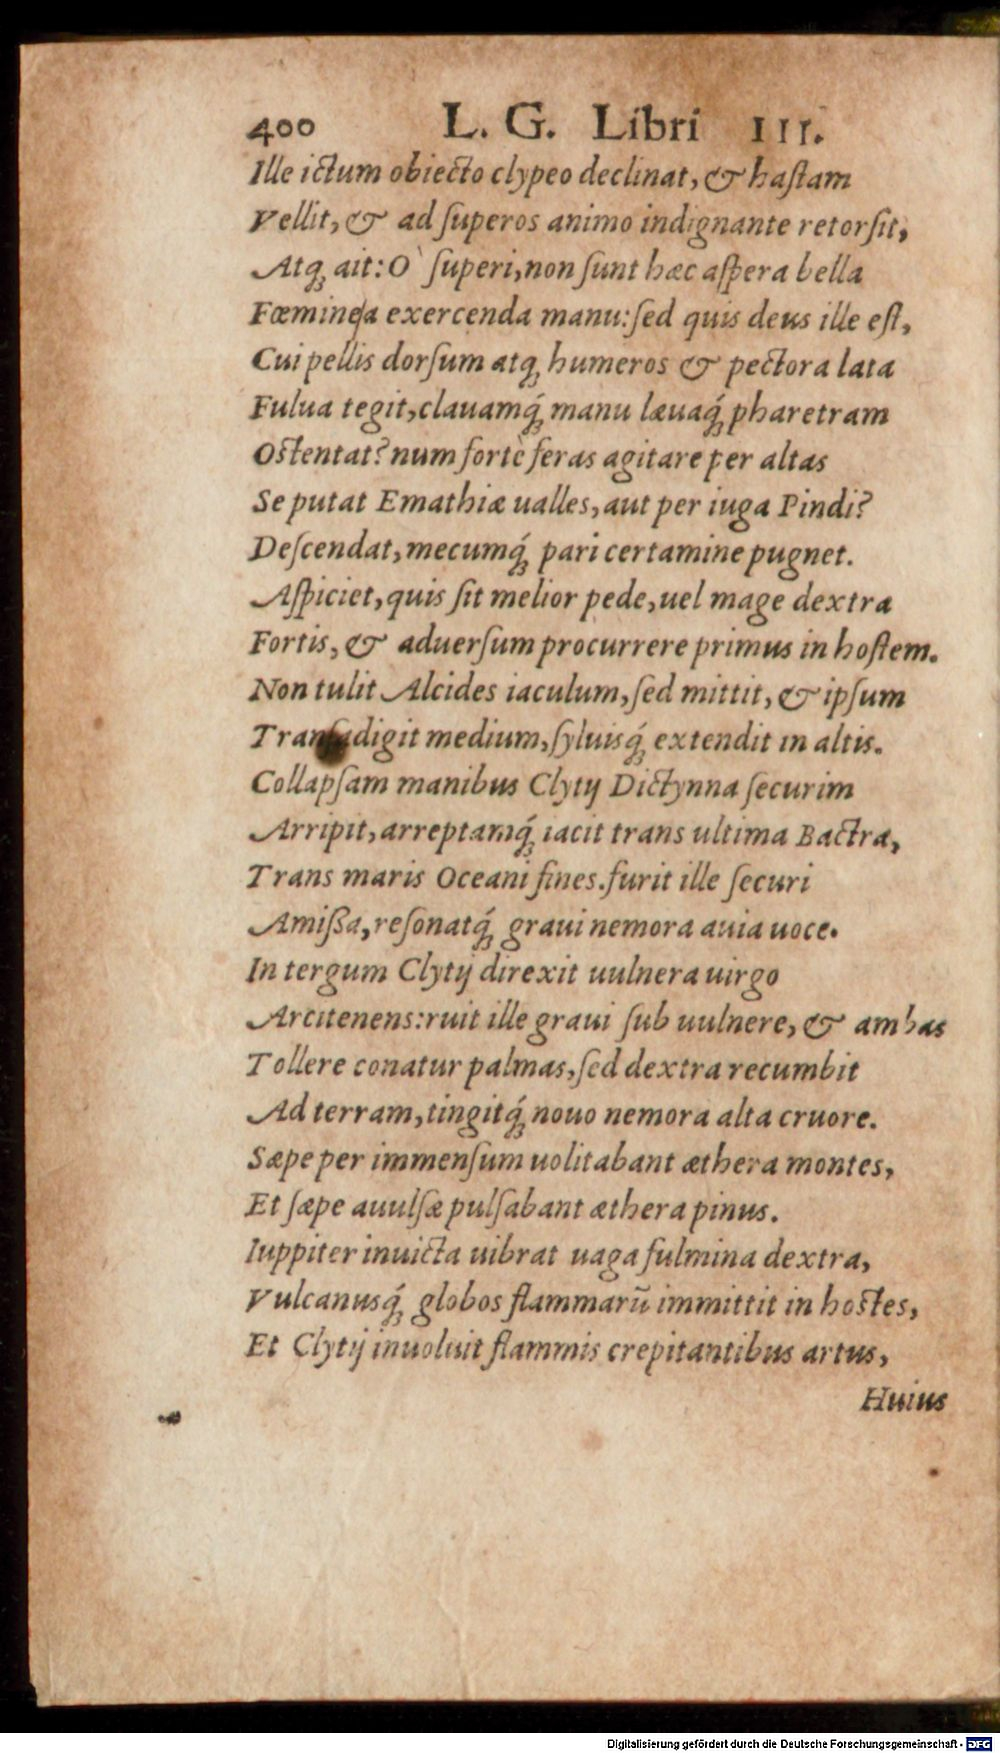 400 L. G. Libri III.
Ille ictum obiecto clypeo declinat, & hastam
Vellit, & ad superos animo indignante retorsit,
Atq; ait: O` superi, non sunt hæc aspera bella
Fœminea exercenda manu: sed quis deus ille est,
Cui pellis dorsum atq; humeros & pectora lata
Fulua tegit, clauamq́; manu læuaq́; pharetram
Ostentat? num fortè feras agitare per altas
Se putat Emathiæ ualles, aut per iuga Pindi?
Descendat, mecumq́; pari certamine pugnet.
Aspiciet, quis sit melior pede, uel mage dextra
Fortis, & aduersum procurrere primus in hostem.
Non tulit Alcides iaculum, sed mittit, & ipsum
Transadigit medium, syluisq́; extendit in altis.
Collapsam manibus Clytij Dictynna securim
Arripit, arreptamq́; iacit trans ultima Bactra,
Trans maris Oceani fines. furit ille securi
Amißa, resonatq́; graui nemora auia uoce.
In tergum Clytij direxit uulnera uirgo
Arcitenens: ruit ille graui sub uulnere, & ambas
Tollere conatur palmas, sed dextra recumbit
Ad terram, tingitq́; nouo nemora alta cruore.
Sæpe per immensum uolitabant æthera montes,
Et sæpe auulsæ pulsabant æthera pinus.
Iuppiter inuicta uibrat uaga fulmina dextra,
Vulcanusq́; globos flammarũ immittit in hostes,
Et Clytij inuoluit flammis crepitantibus artus,
Huius
Digitalisierung gefördert durch die Deutsche Forschungsgemeinschaft - DFG